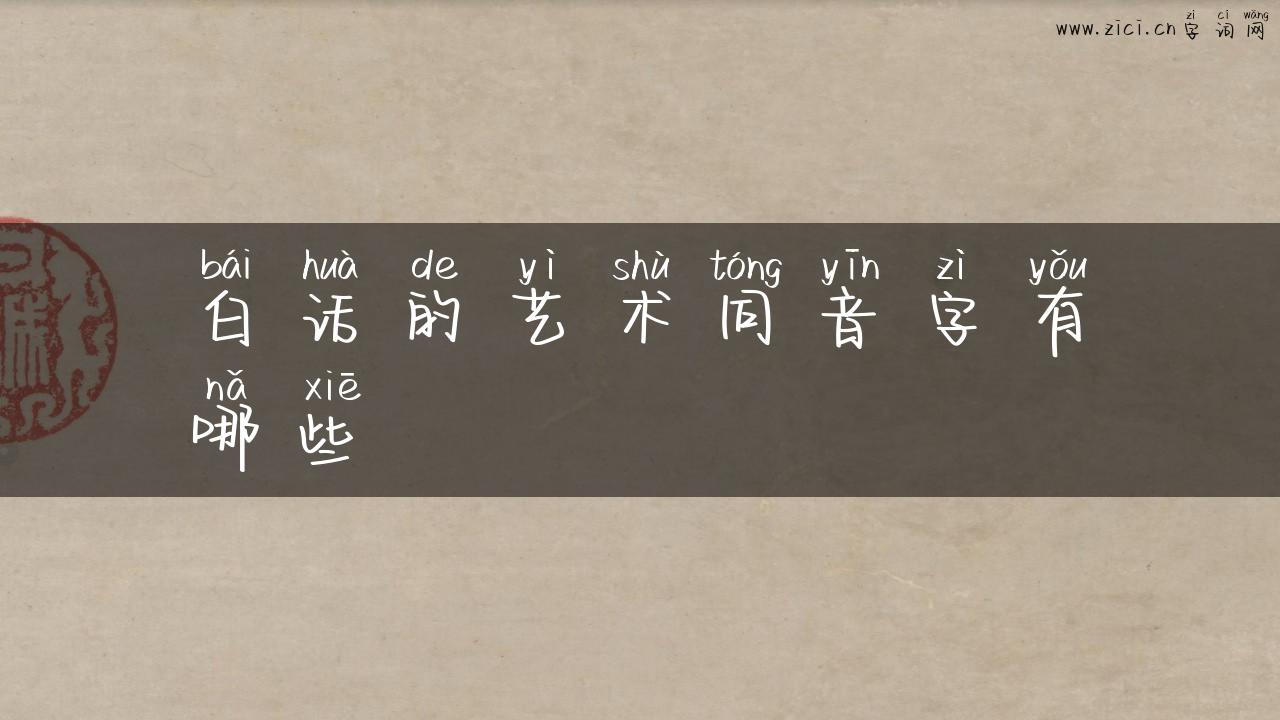 zì cí wǎng
www.zici.cn 字词网
bái huà de yì shù tóng yīn zì yǒu
白话的艺术同音字有
nǎ xiē
哪些